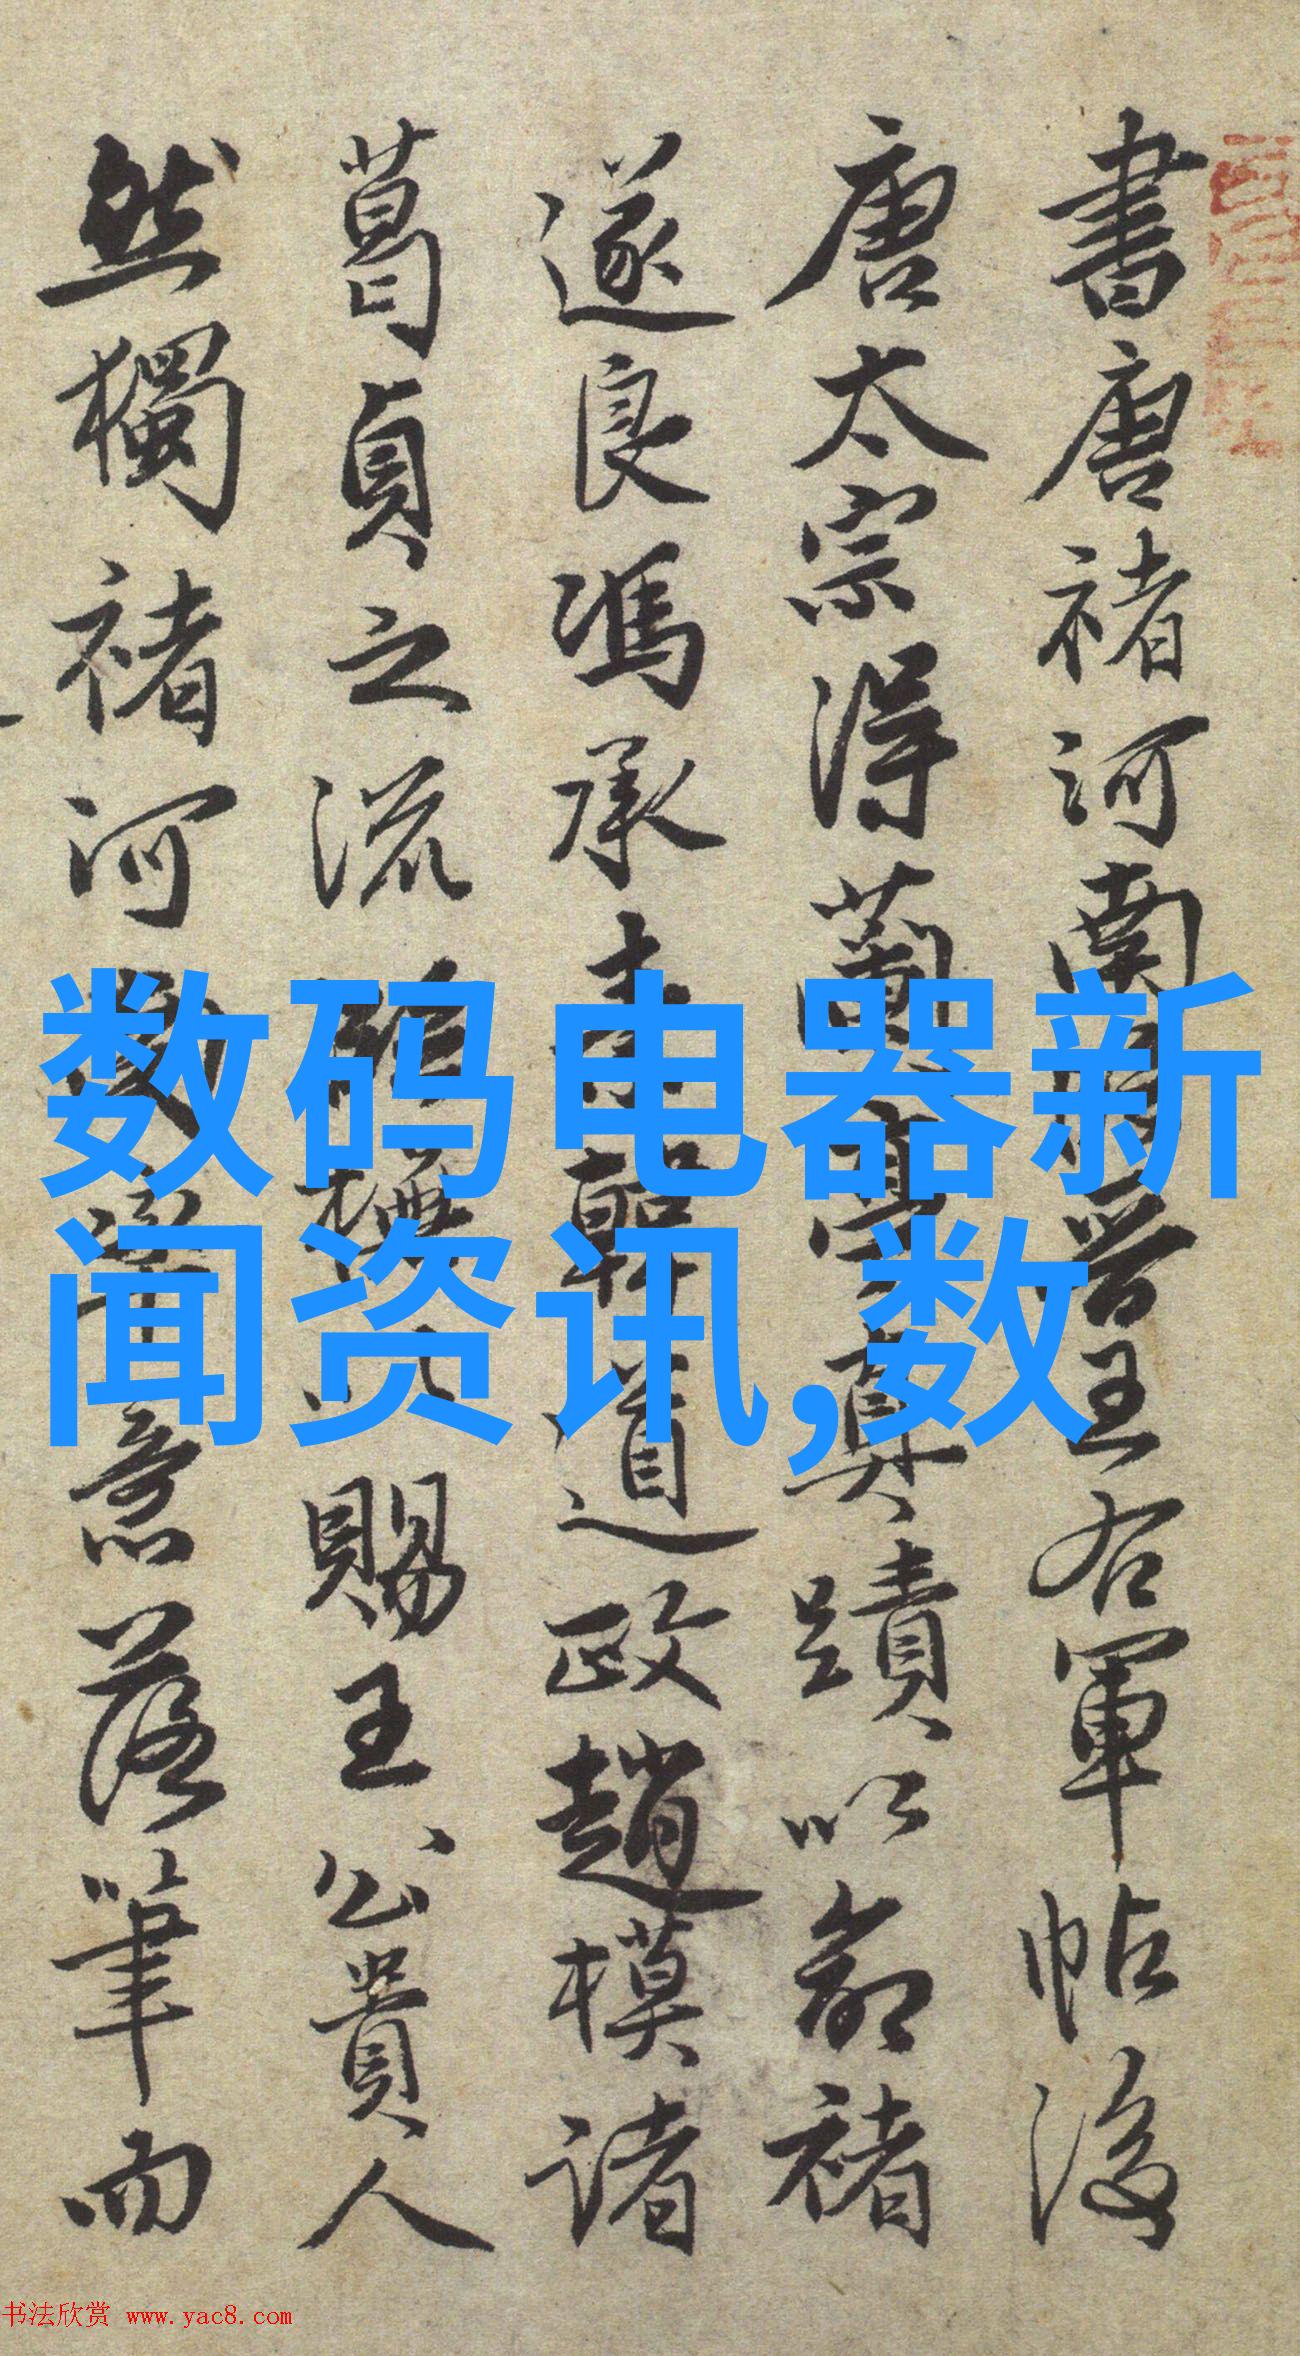 書唐褚河南晉王右軍帖後
唐太宗得蘭亭真蹟以命褚
遂良馮承素韓道政趙模諸
葛貞之流賜王公貴人
然獨褚河意落筆而
数码电器新
闻资讯,数
书法欣赏 www.yac8.com